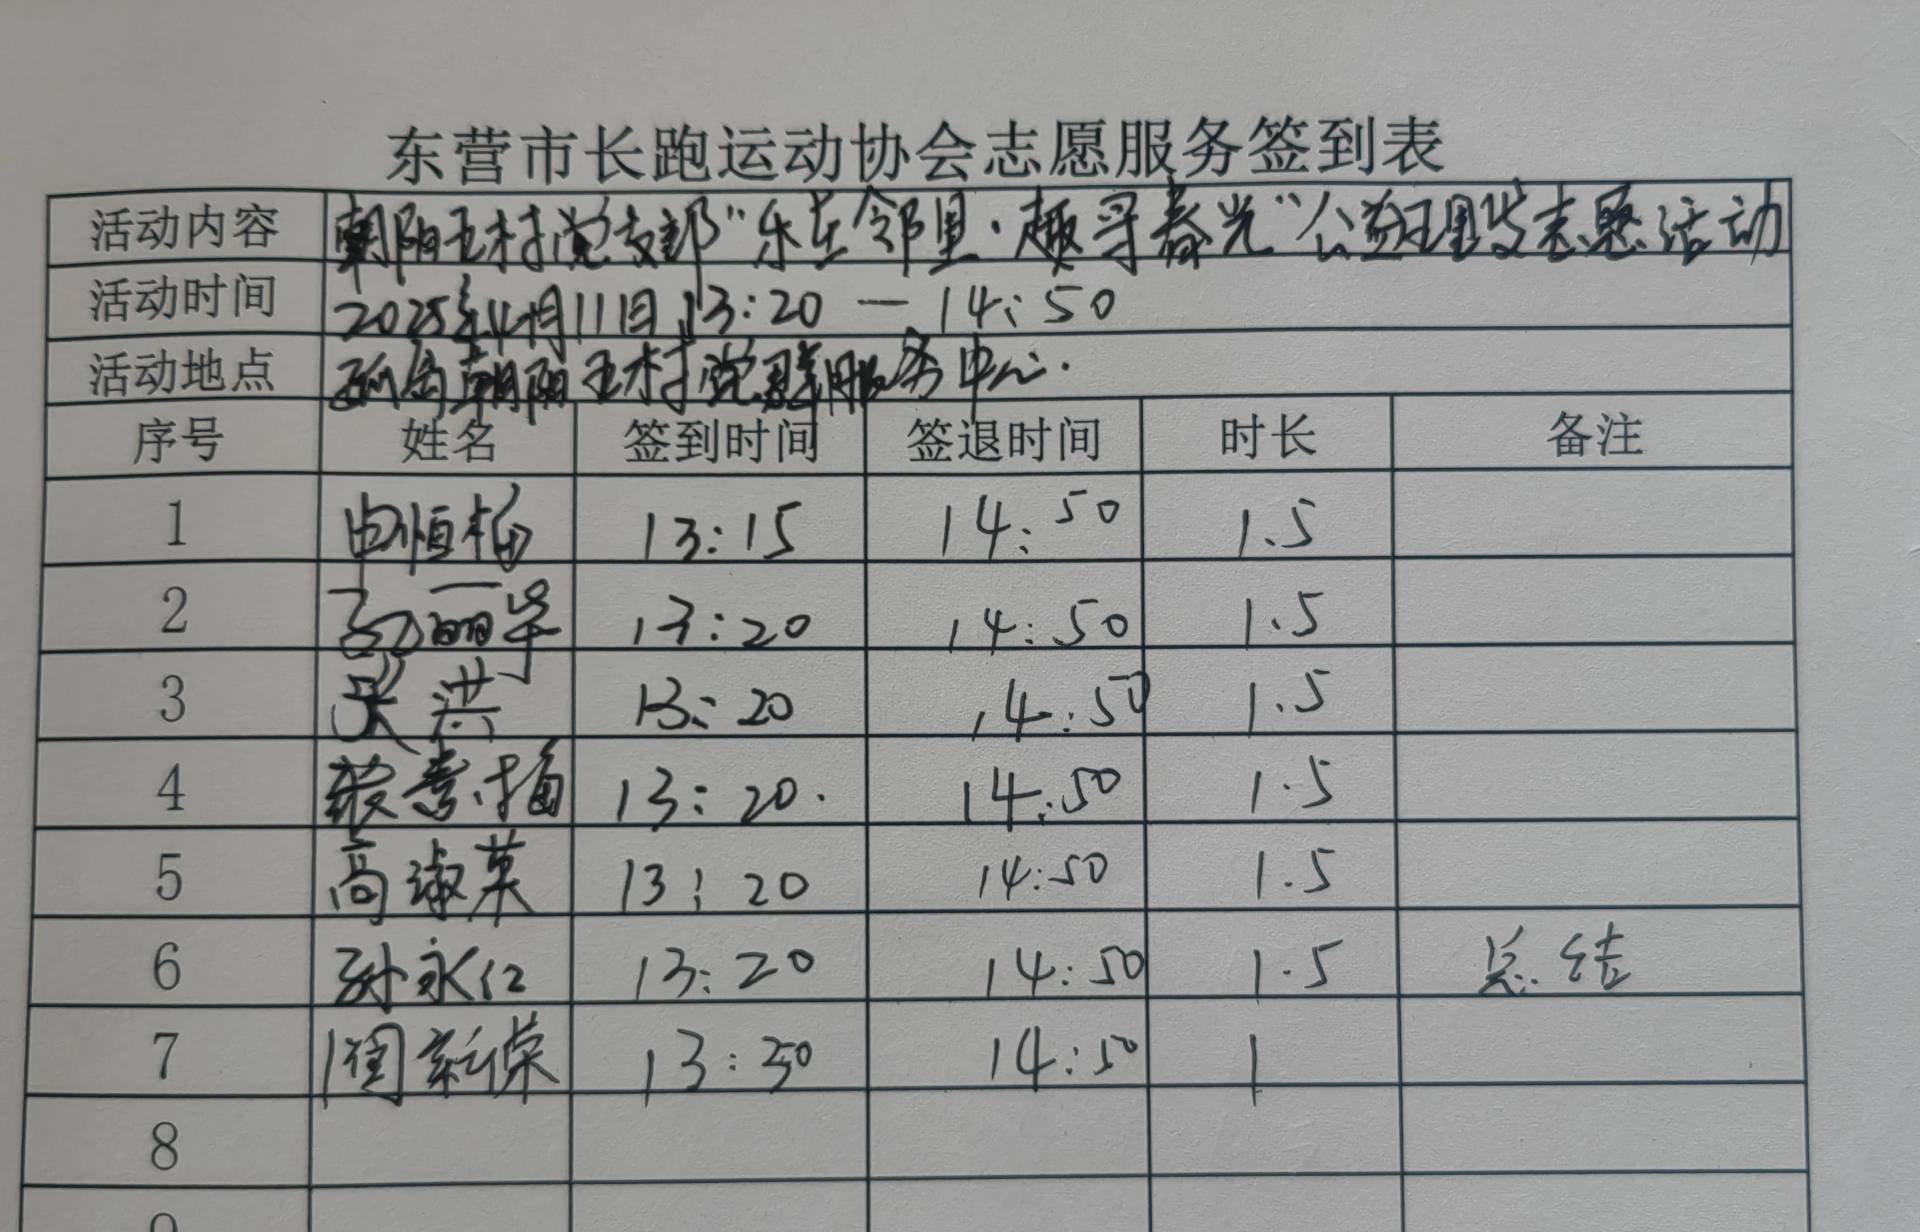 东营市长跑运动协会志愿服务签到表
活动内容 朝阳王村党支部“乐在邻里·趣寻春光”公益理发志愿活动
活动时间 2025年4月11日 13:20 — 14:50
活动地点 孤岛朝阳王村党群服务中心.
序号 姓名 签到时间 签退时间 时长 备注
1 由恒梅 13:15 14:50 1.5
2 孙丽华 13:20 14:50 1.5
3 张洪 13:20 14:50 1.5
4 13:20. 14:50 1.5
5 高淑英 13:20 14:50 1.5
6 孙永仁 13:20 14:50 1.5 总结
7 13:50 14:50 1
8
9